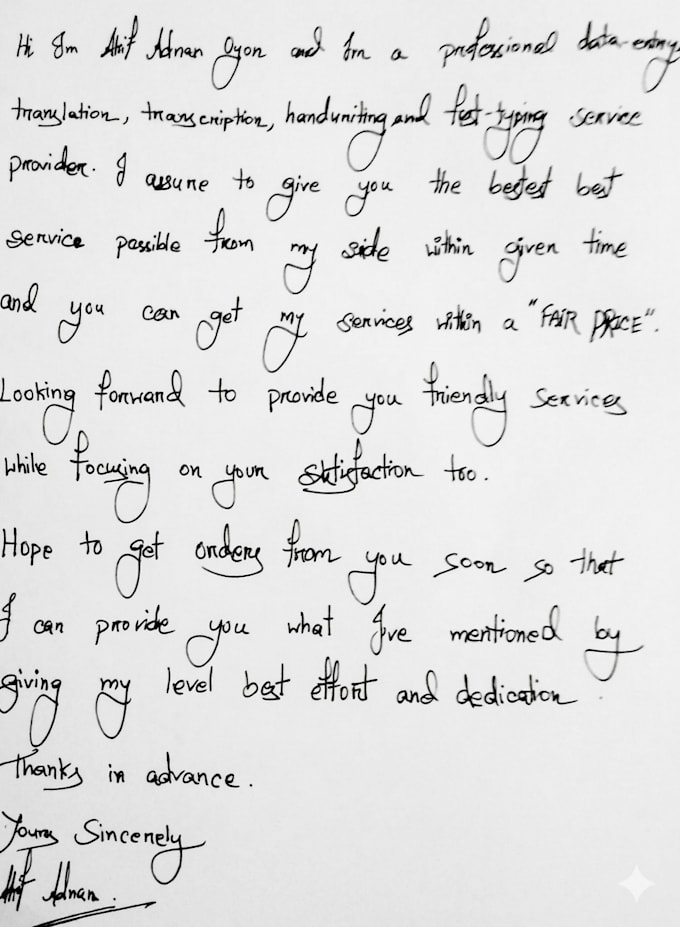 Hi Im Atif Adnan Oyon and Im a professional data-entry,
translation, transcription, handwriting and fast-typing service
provider. I assure to give you the bestest best
service possible from my side within given time
and you can get my services within a "FAIR PRICE".
Looking forward to provide you friendly services
while focusing on your satisfaction too.
Hope to get orders from you soon so that
I can provide you what I've mentioned by
giving my level best effort and dedication.
Thanks in advance.
Yours Sincerely
Atif Adnan.